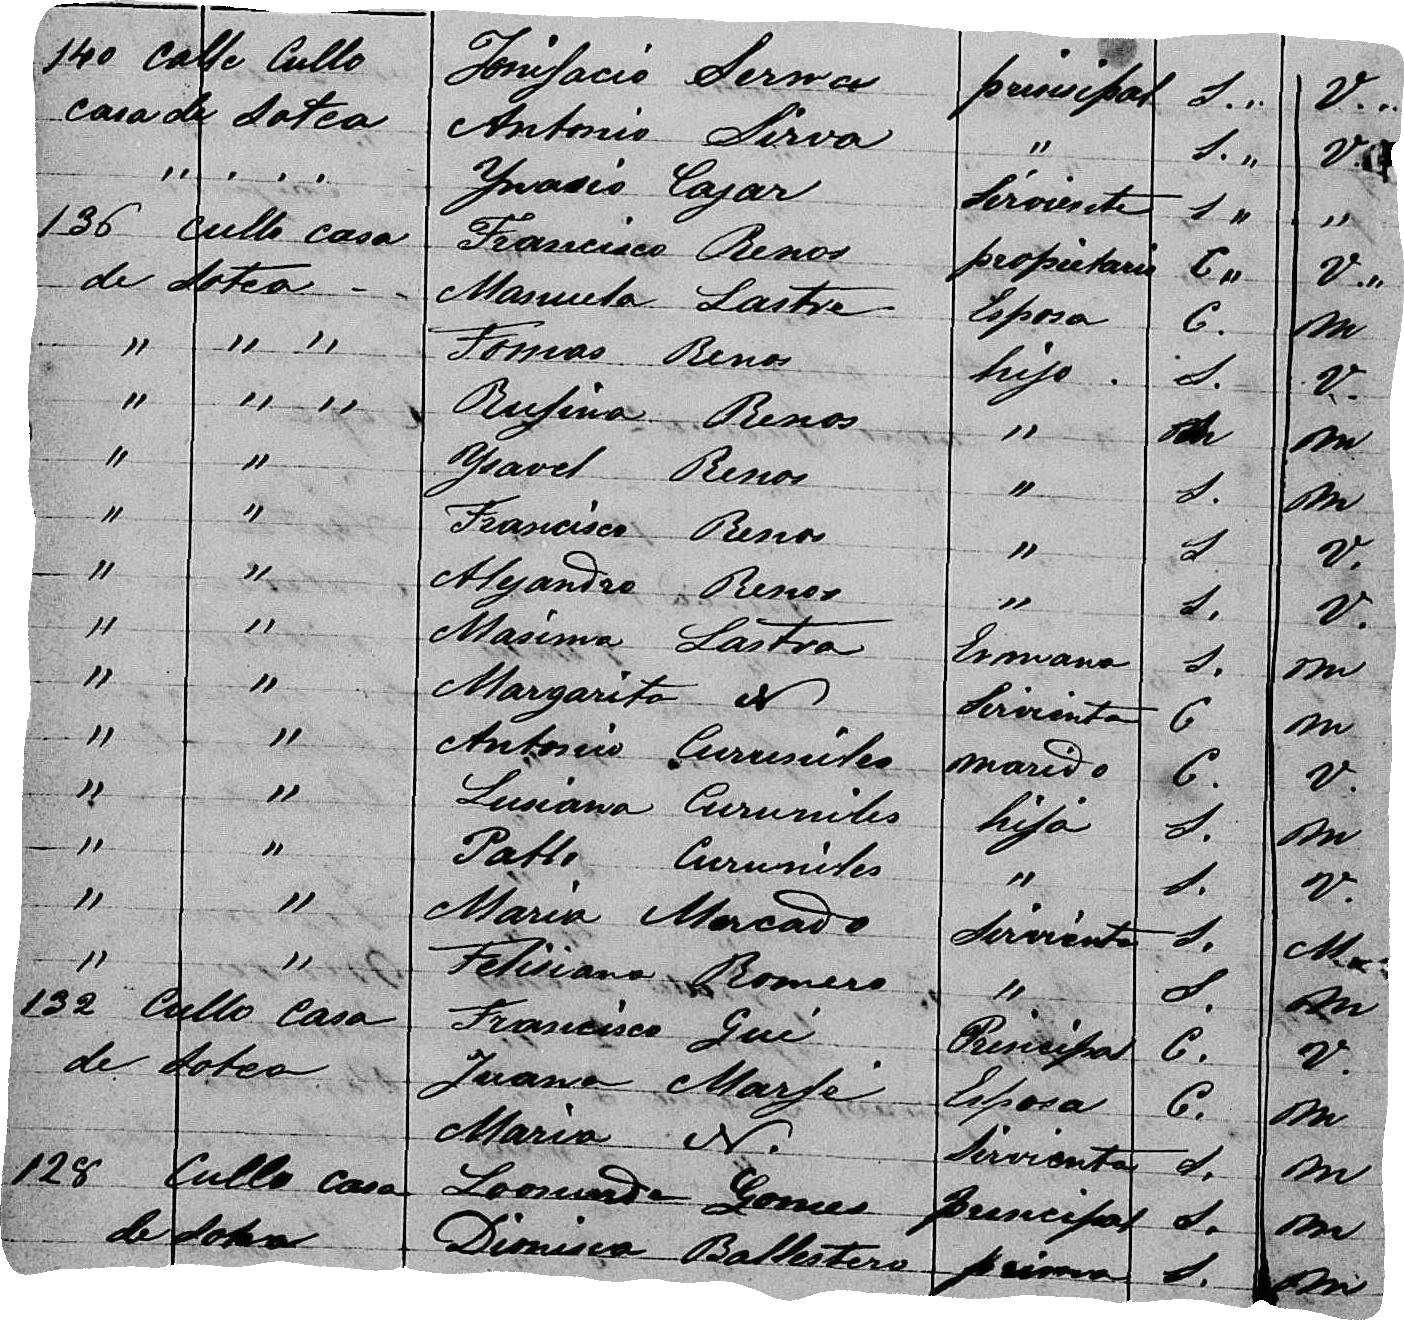 140 Calle Cullo Bonifacio Serna principal S. „ V. „
casa de Sotea Antonio Sirva " S. „ V.
" . . . Ynasio Cajar Sirviente S „ "
136 Cullo casa Francisco Renos propietario C „ V. „
de Sotea - - Manuela Lastre Esposa C. m
" " " Tomas Renos hijo . S. V.
" " " Rufina Renos " m
" " Ysavel Renos " S. m
" " Francisco Renos " S V.
" " Alejandro Renos " S. V.
" " Masima Lastra Ermana S. m
" " Margarita N Sirvienta C m
" " Antonio Curuniles marido C. V.
" " Lusiana Curuniles hija S. m
" " Pablo Curuniles " S. V.
" " Maria Mercado Sirvienta S. M
" " Felisiana Romero " S. m
132 Cullo Casa Francisco Gui Principal C. V.
de Sotea Juana Marfé Esposa C. m
Maria N. Sirvienta S. m
128 Cullo casa Leonarda Gomes principal S. m
de Sotea Dionisia Ballestero prima S. m